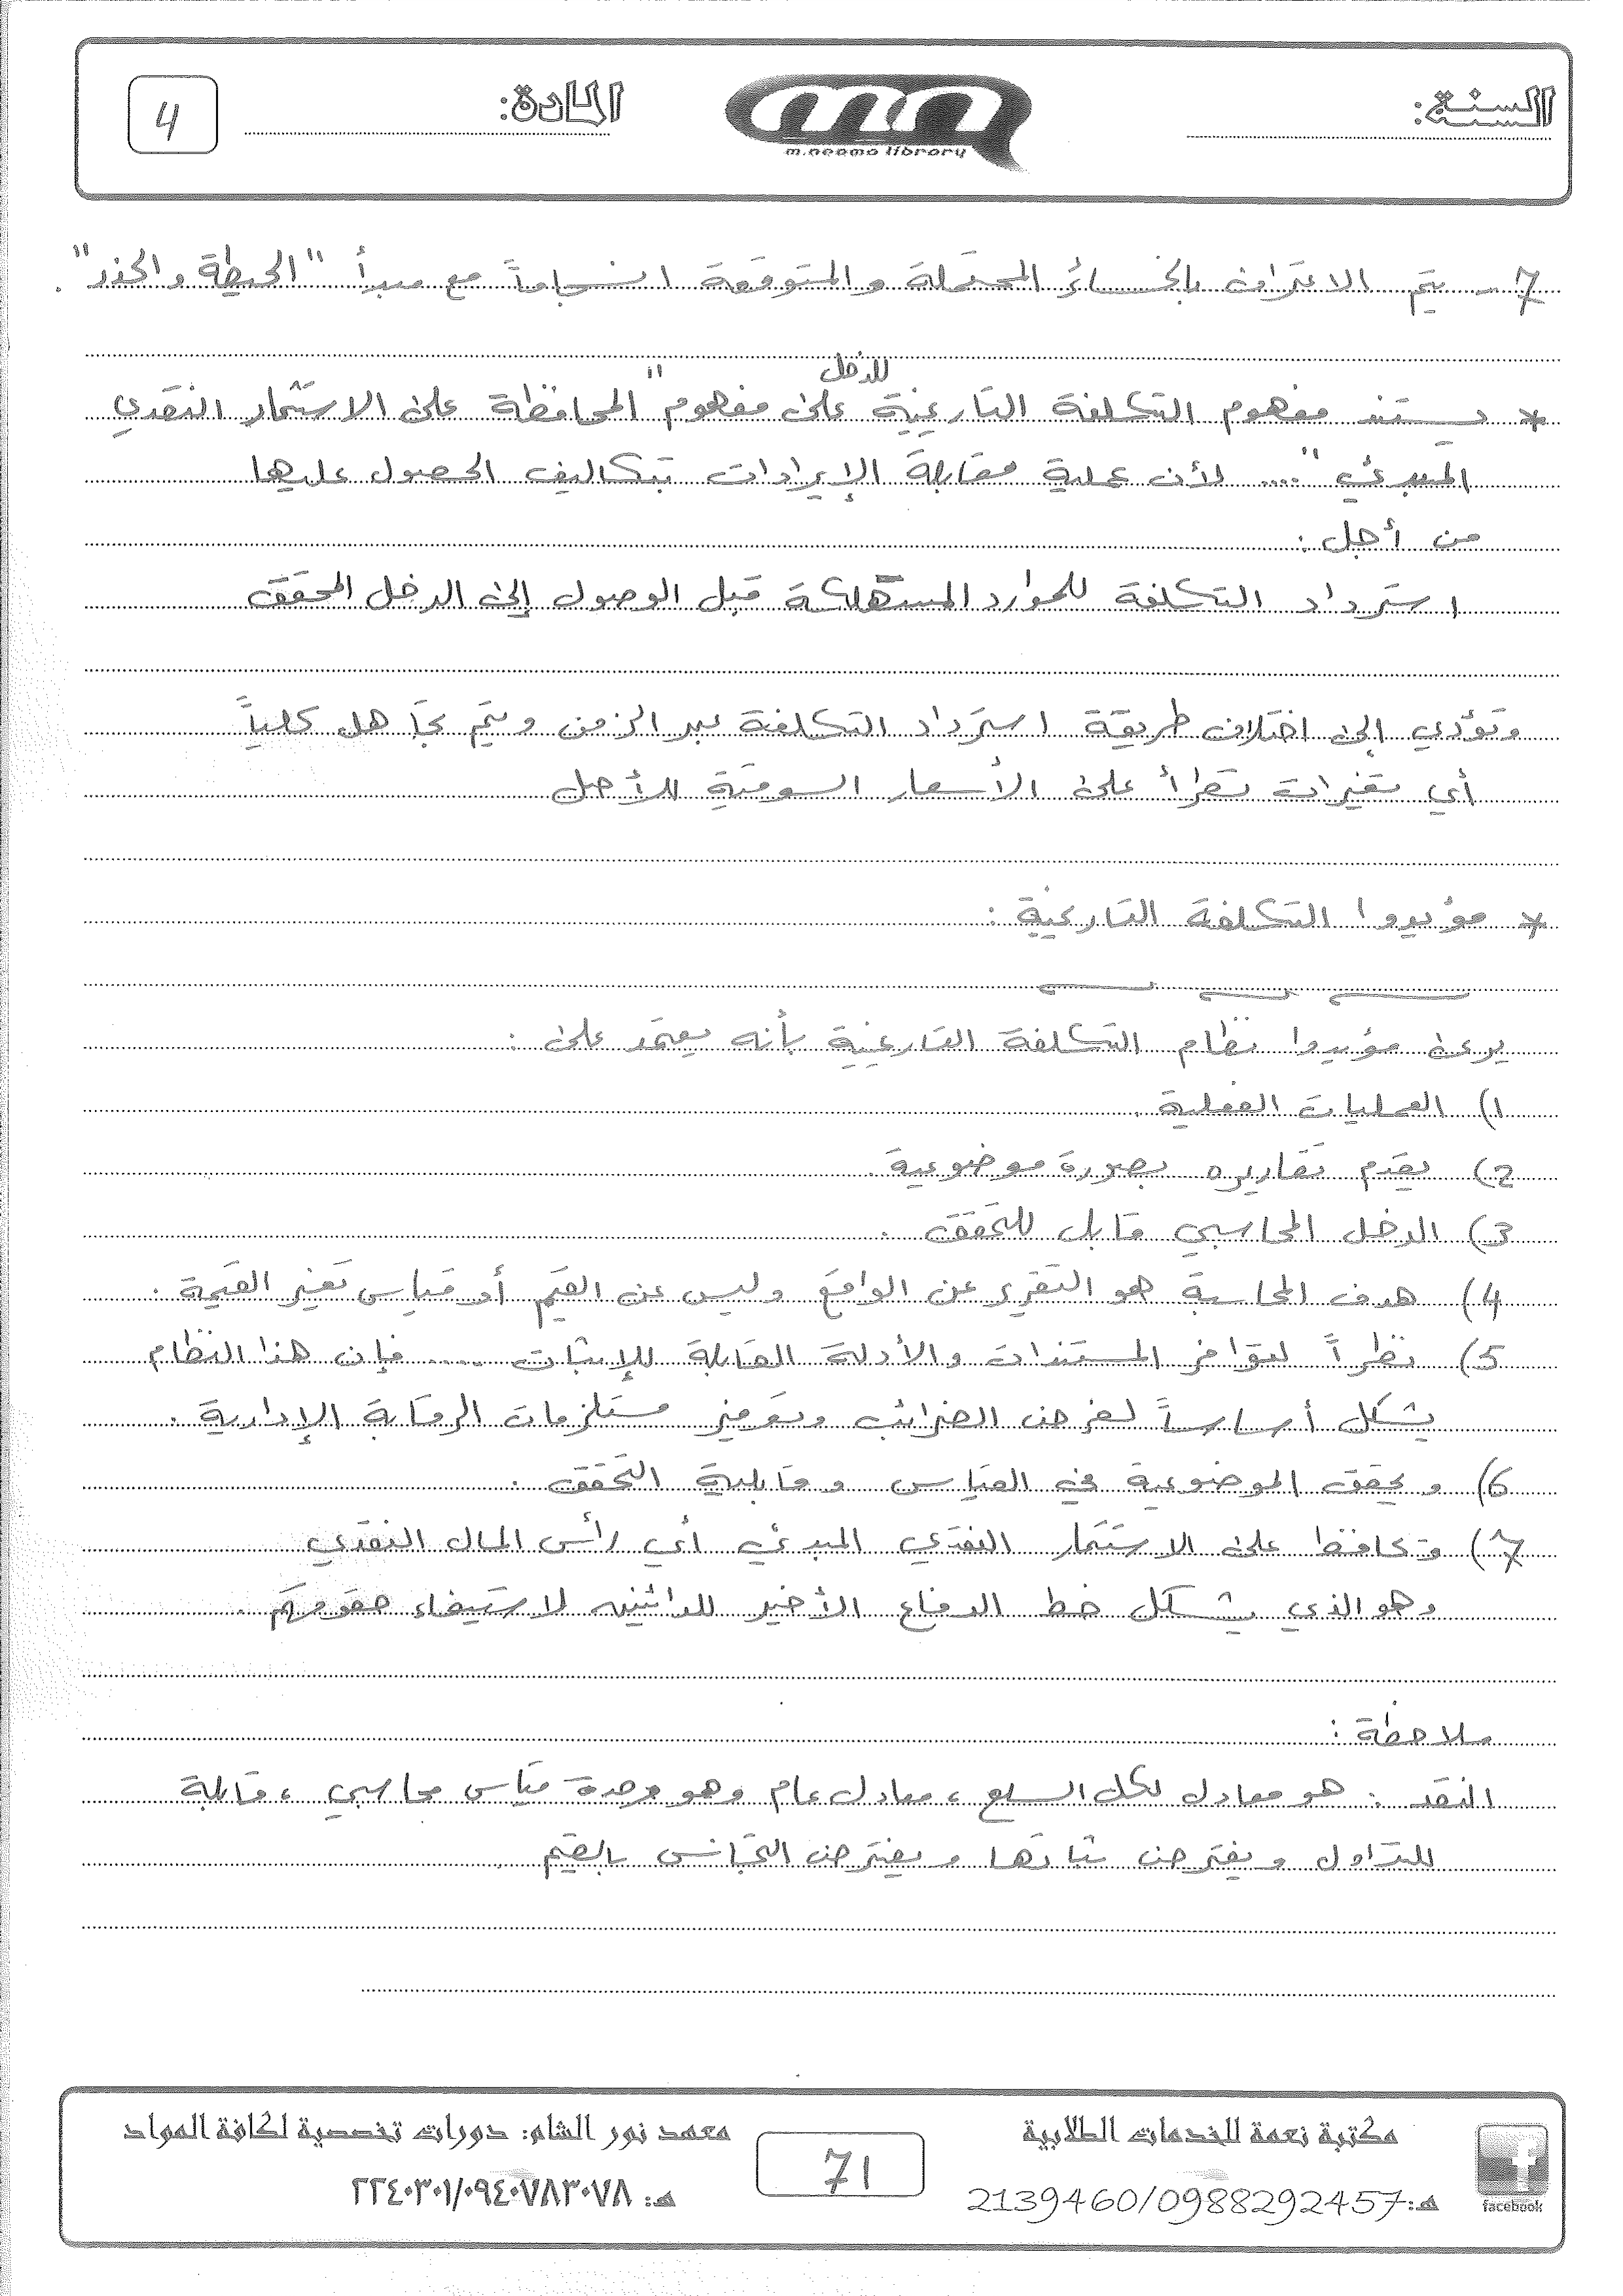 السنة:
m.neama library
المادة:
4
7- يتم الاعتراف بالخسائر المحتملة والمتوقعة انسجاماً مع مبدأ "الحيطة والحذر".
للدخل
* يستند مفهوم التكلفة التاريخية على مفهوم "المحافظة على الاستثمار النقدي
المبدئي" .... لأن عملية مقابلة الإيرادات بتكاليف الحصول عليها
من أجل:
استرداد التكلفة للموارد المستهلكة قبل الوصول إلى الدخل المحقق
وتؤدي إلى اختلاف طريقة استرداد التكلفة عبر الزمن ويتم تجاهل كلياً
أي تغيرات تطرأ على الأسعار السوقية للأصل
* مؤيدوا التكلفة التاريخية:
يرى مؤيدوا نظام التكلفة التاريخية بأنه يعتمد على:
1) العمليات الفعلية.
2) يقدم تقاريره بصورة موضوعية.
3) الدخل المحاسبي قابل للتحقق.
4) هدف المحاسبة هو التقرير عن الواقع وليس عن القيم أو قياس تغير القيمة.
5) نظراً لتوافر المستندات والأدلة القابلة للإثبات .... فإن هذا النظام
يشكل أساساً لفرض الضرائب وتوفير مستلزمات الرقابة الإدارية.
6) ويحقق الموضوعية في القياس وقابلية التحقق.
7) وتحافظ على الاستثمار النقدي المبدئي أي رأس المال النقدي
وهو الذي يشكل خط الدفاع الأخير للدائنين لاستيفاء حقوقهم.
ملاحظة:
النقد: هو معادل لكل السلع، معادل عام وهو وحدة قياس محاسبي، قابلة
للتداول ويفترض ثباتها ويفترض التجانس بالقيم
facebook
مكتبة نعمة للخدمات الطلابية
هـ: 2139460/0988292457
71
معهد نور الشام: دورات تخصصية لكافة المواد
هـ: ٢٢٤٠٣٠١/٠٩٤٠٧٨٣٠٧٨